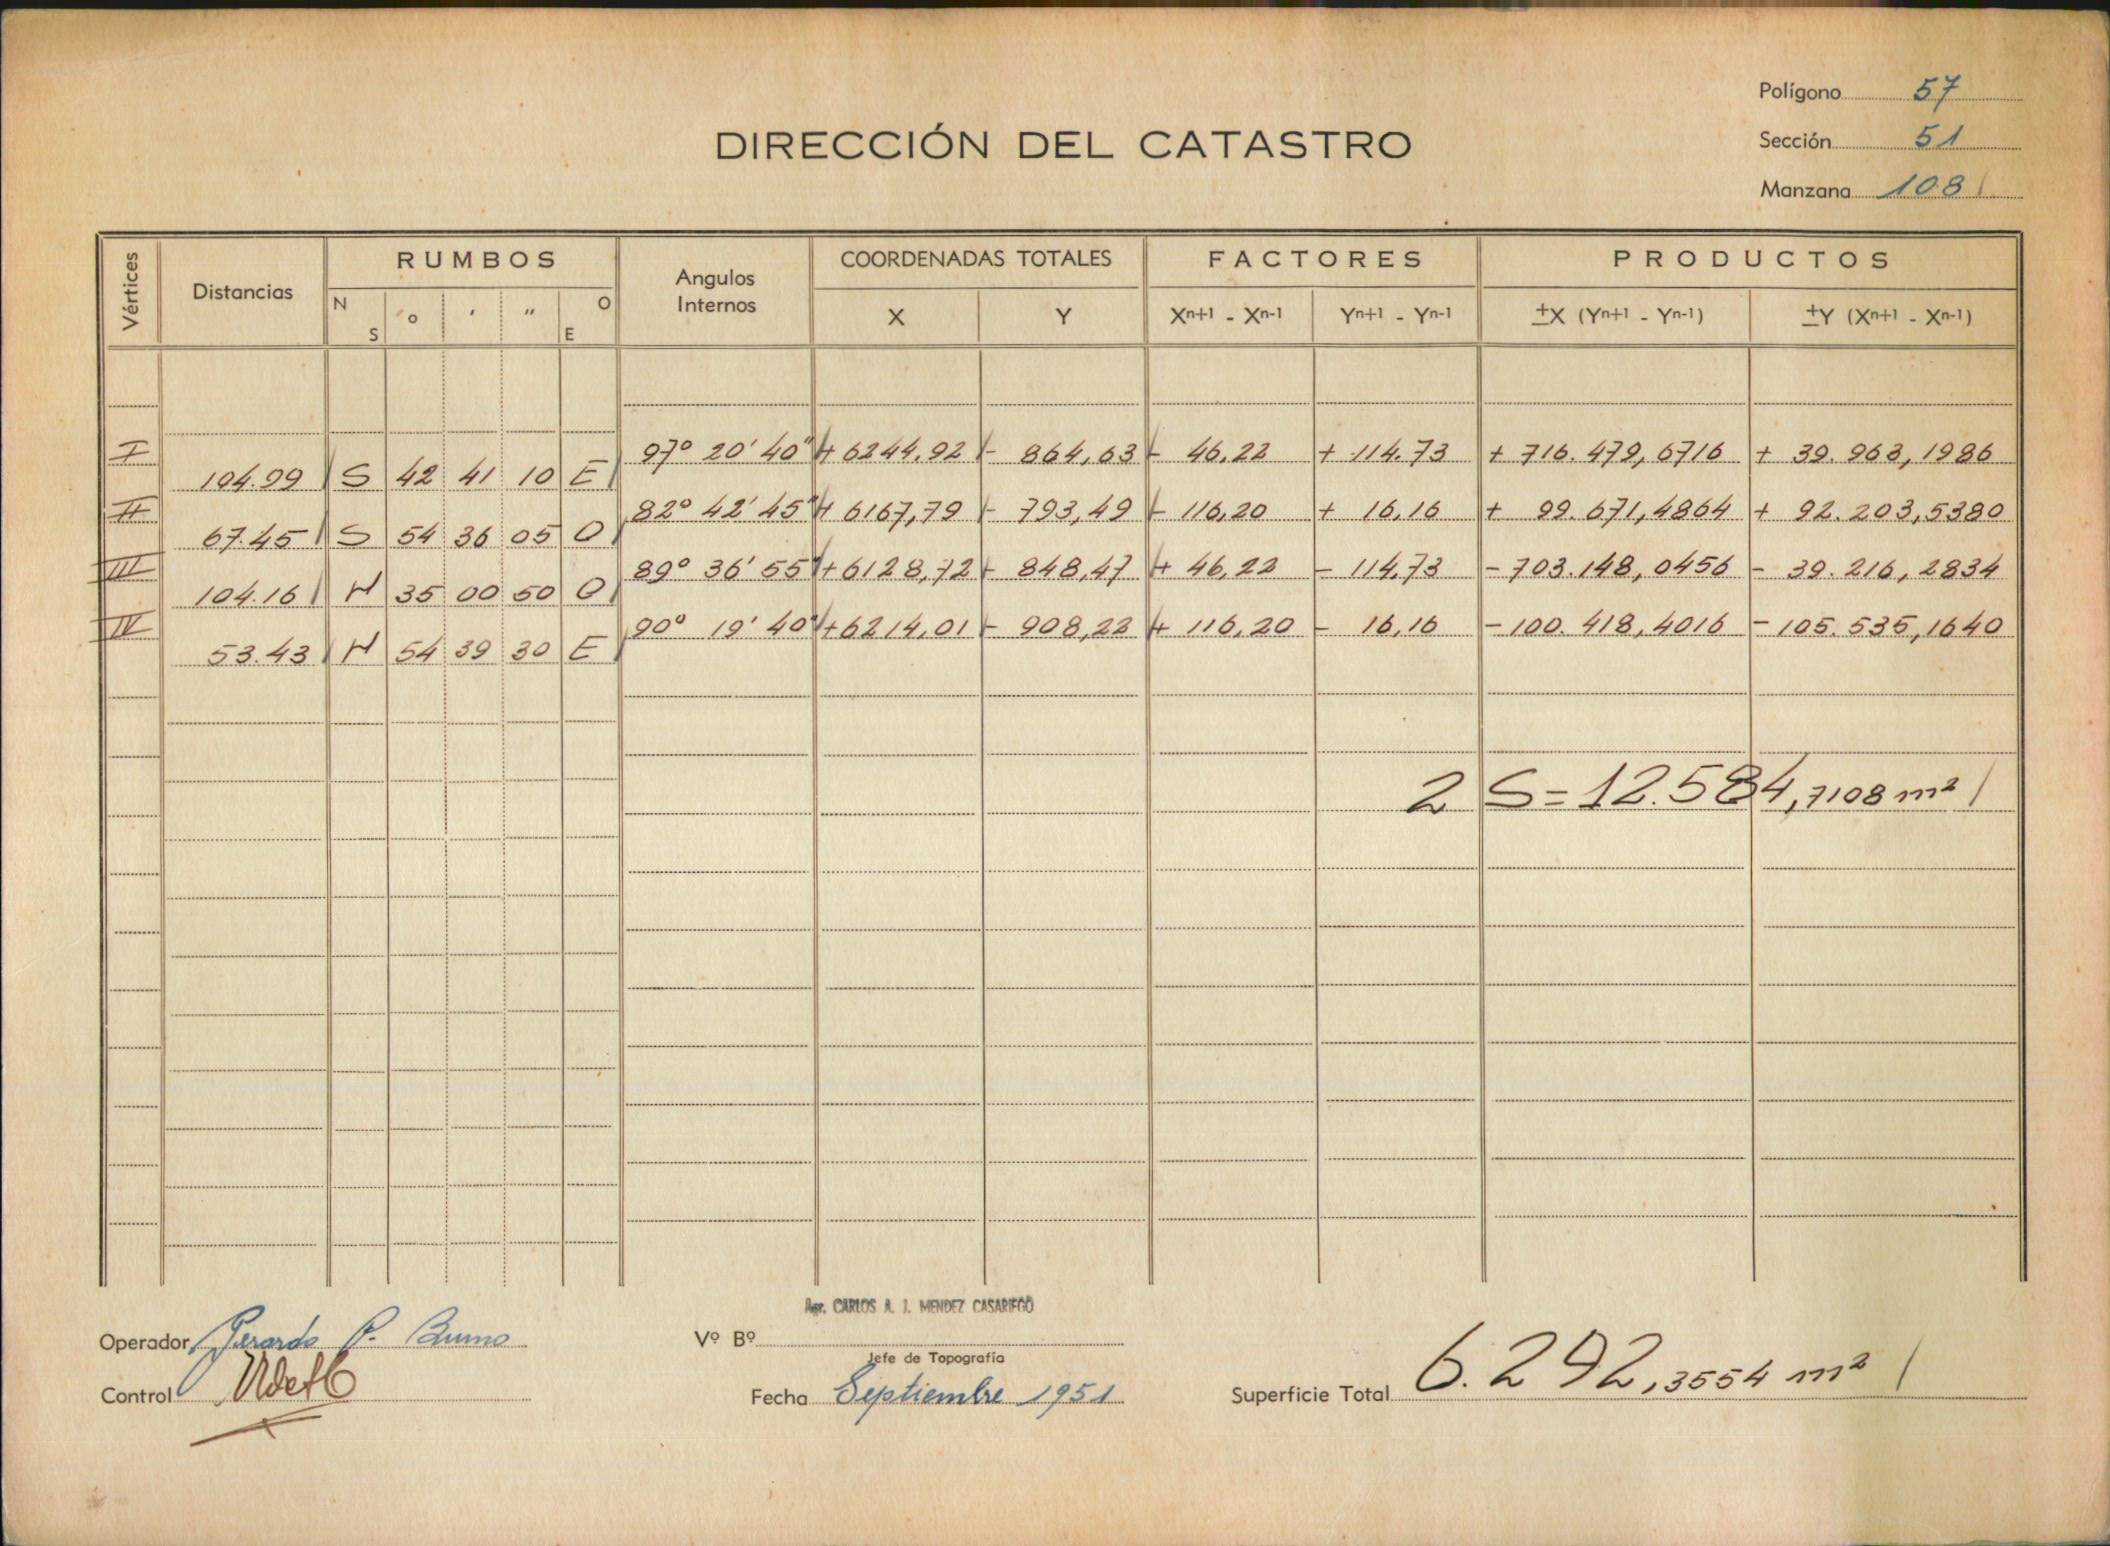 Polígono 57
DIRECCIÓN DEL CATASTRO
Sección 51
Manzana 108
Vértices Distancias RUMBOS Angulos Internos COORDENADAS TOTALES FACTORES PRODUCTOS
N S ° ' " O E X Y Xn+1 - Xn-1 Yn+1 - Yn-1 ±X (Yn+1 - Yn-1) ±Y (Xn+1 - Xn-1)
I 97° 20' 40" + 6244,92 - 864,63 - 46,22 + 114,73 + 716.479,6716 + 39.963,1986
104.99 S 42 41 10 E
II 82° 42' 45" + 6167,79 - 793,49 - 116,20 + 16,16 + 99.671,4864 + 92.203,5380
67.45 S 54 36 05 O
III 89° 36' 55" + 6128,72 - 848,47 + 46,22 - 114,73 - 703.148,0456 - 39.216,2834
104.16 N 35 00 50 O
IV 90° 19' 40" + 6214,01 - 908,22 + 116,20 - 16,16 - 100.418,4016 - 105.535,1640
53.43 N 54 39 30 E
2 S = 12.584,7108 m²
Agr. CARLOS A. J. MENDEZ CASARIEGO
Operador Gerardo P.
Vº Bº
Jefe de Topografía
Control
Fecha Septiembre 1951
Superficie Total 6.292,3554 m²